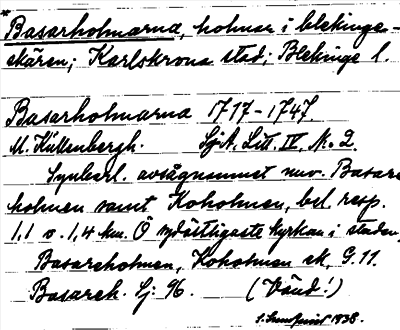 * Basarholmarna, holmar i blekinge-
skären; Karlskrona stad; Blekinge l.
Basarholmarna 1717-1747.
M. Küllenbergh. SjA. Litt. IV, No. 2.
Synbarl. avsågs namnet nuv. Basare-
holmen samt Koholmen, bel. resp.
1,1 o. 1,4 km. Ö sydöstligaste kyrkan i staden,
Basareholmen, Koholmen ek. G. 11.
Basareh. Sj. 96. (Vänd!)
1938.